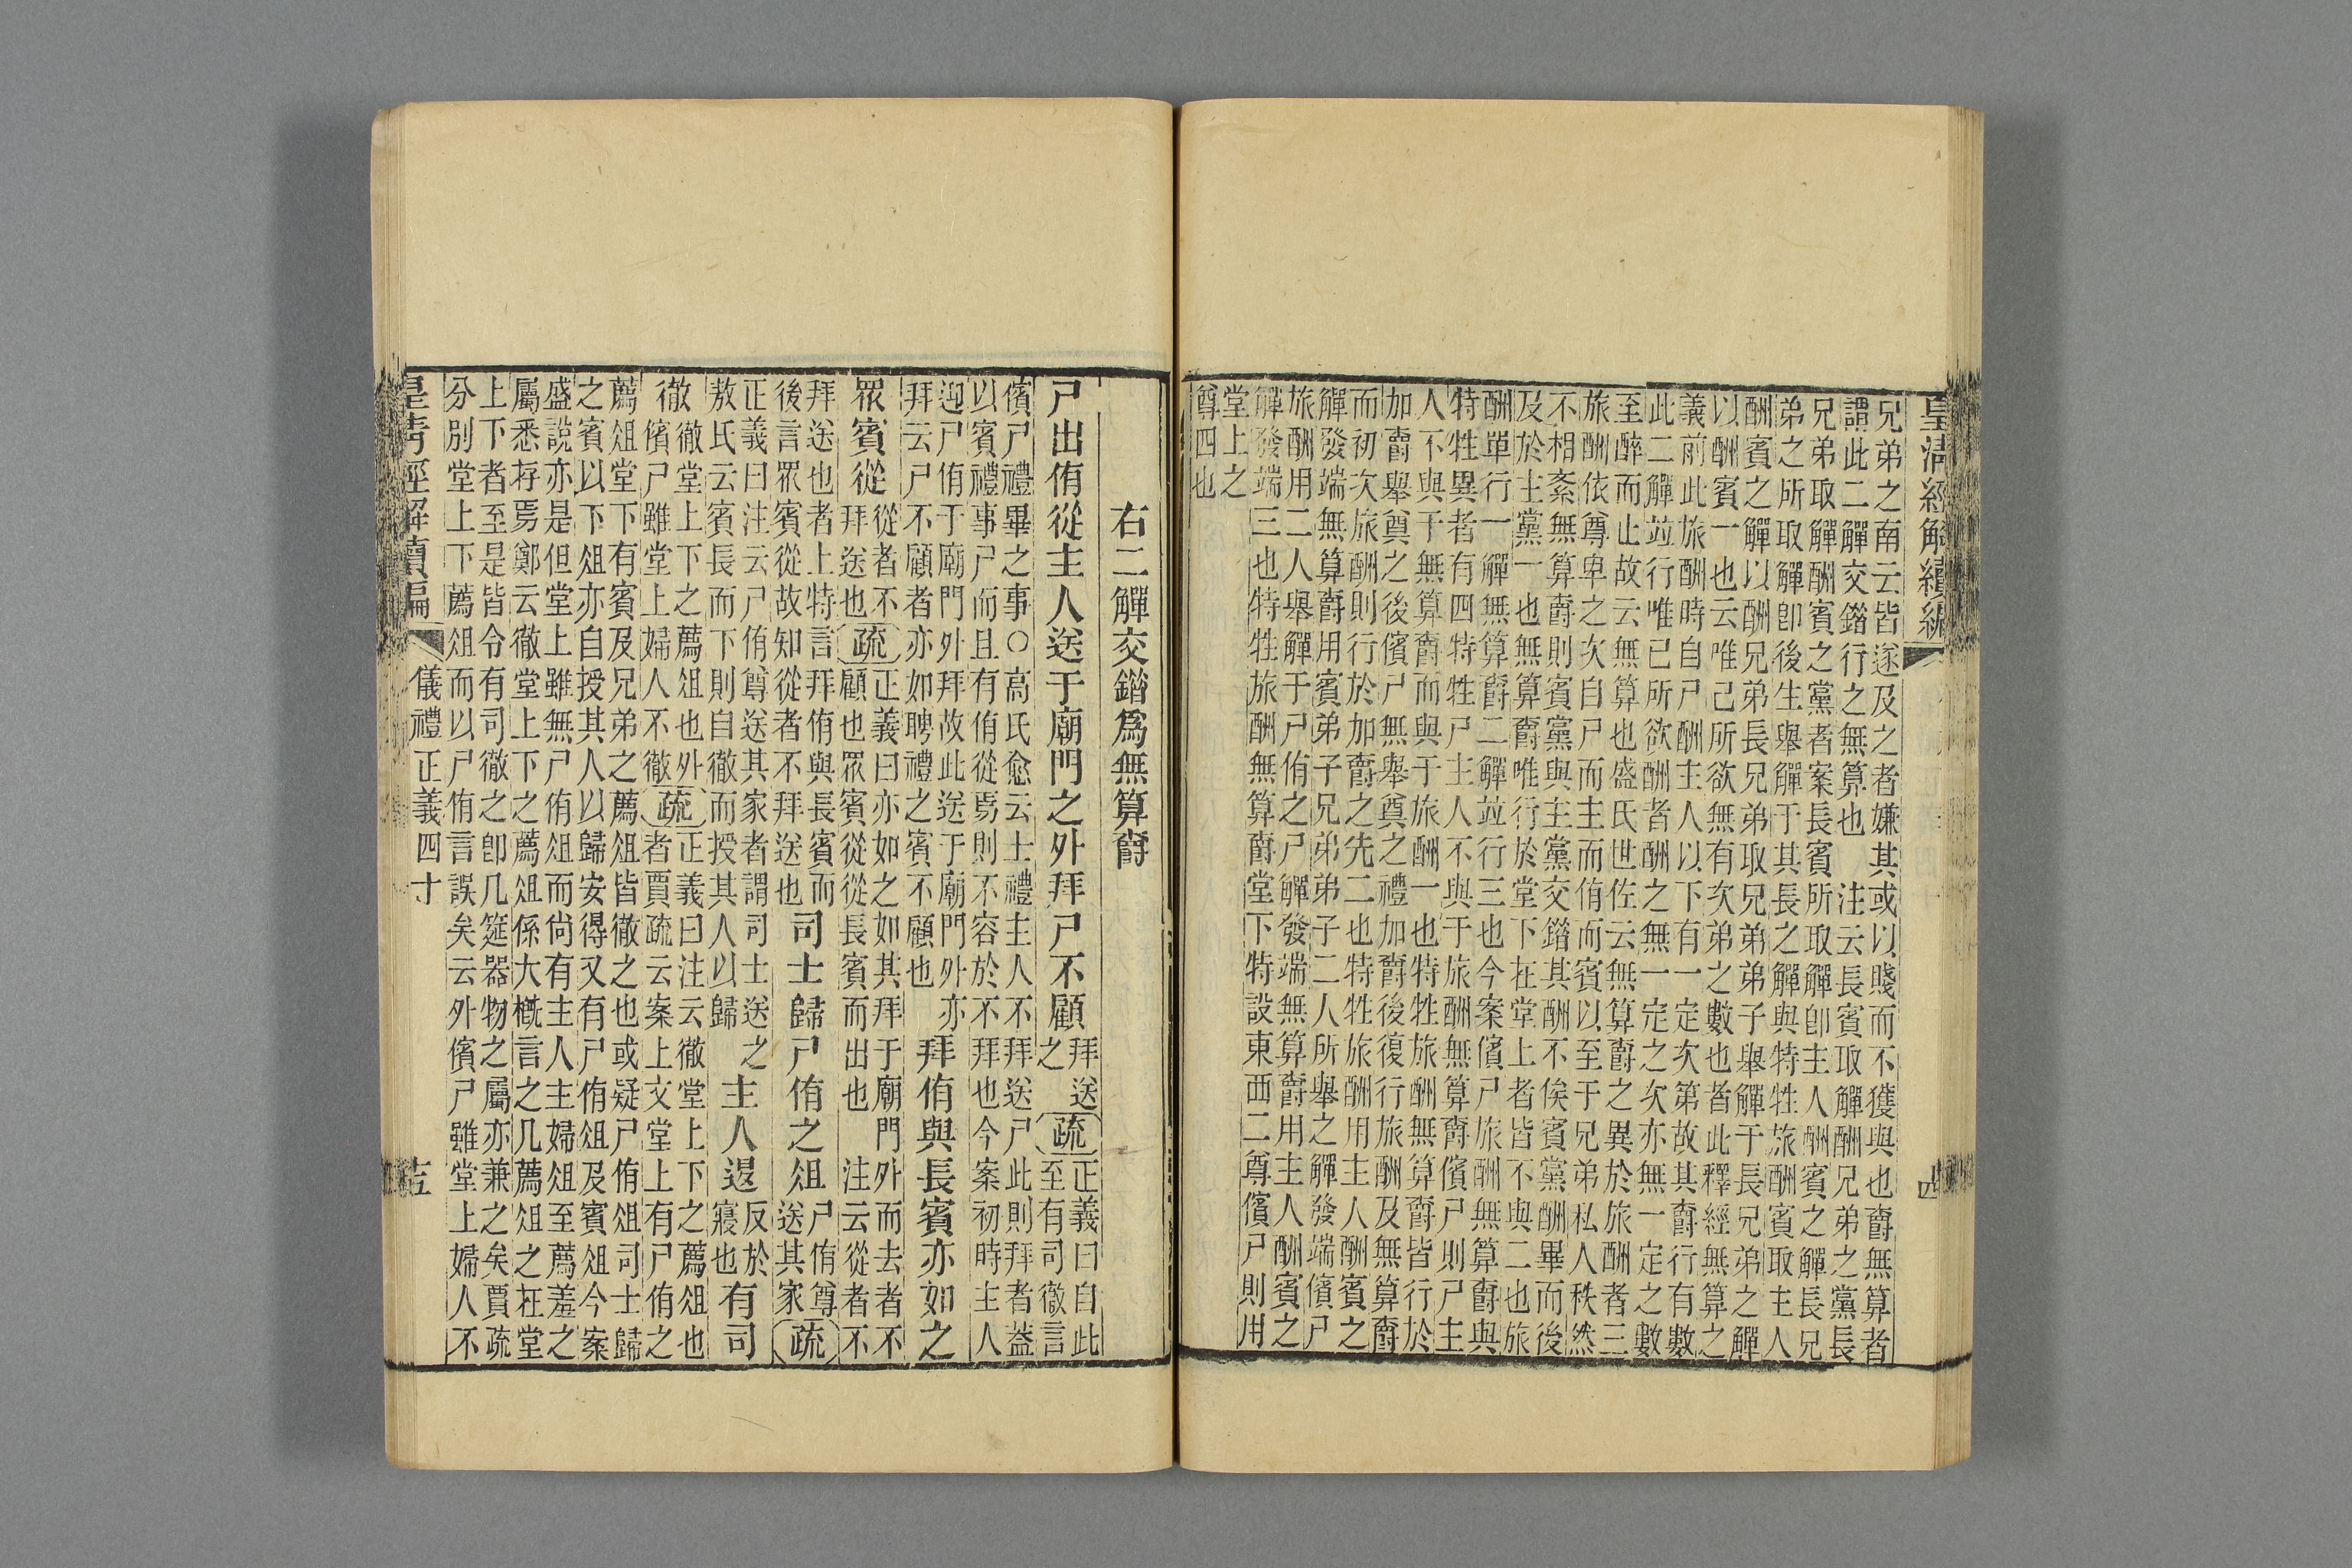 皇清經解續編
四
兄弟之南云皆遂及之者嫌其或以賤而不獲與也爵無算者
謂此二觶交錯行之無算也　注云長賓取觶酬兄弟之黨長
兄弟取觶酬賓之黨者案長賓所取觶卽主人酬賓之觶長兄
弟之所取觶卽後生舉觶于其長之觶與特牲旅酬賓取主人
酬賓之觶以酬兄弟長兄弟取兄弟弟子舉觶于長兄弟之觶
以酬賓一也云唯己所欲無有次弟之數也者此釋經無算之
義前此旅酬時自尸酬主人以下有一定次第故其爵行有數
此二觶竝行唯已所欲酬者酬之無一定之次亦無一定之數
至醉而止故云無算也盛氏世佐云無算爵之異於旅酬者三
旅酬依尊卑之次自尸而主而侑而賓以至于兄弟私人秩然
不相紊無算爵則賓黨與主黨交錯其酬不俟賓黨酬畢而後
及於主黨一也無算爵唯行於堂下在堂上者皆不與二也旅
酬單行一觶無算爵二觶竝行三也今案儐尸旅酬無算爵與
特牲異者有四特牲尸主人不與于旅酬無算爵儐尸則尸主
人不與于無算爵而與于旅酬一也特牲旅酬無算爵皆行於
加爵舉奠之後儐尸無舉奠之禮加爵後復行旅酬及無算爵
而初次旅酬則行於加爵之先二也特牲旅酬用主人酬賓之
觶發端無算爵用賓弟子兄弟弟子二人所舉之觶發端儐尸
旅酬用二人舉觶于尸侑之尸觶發端無算爵用主人酬賓之
觶發端三也特牲旅酬無算爵堂下特設東西二尊儐尸則用
堂上之
尊四也
右二觶交錯爲無算爵
尸出侑從主人送于廟門之外拜尸不顧
拜送
之
疏
正義曰自此
至有司徹言
儐尸禮畢之事○高氏愈云士禮主人不拜送尸此則拜者蓋
以賓禮事尸而且有侑從焉則不容於不拜也今案初時主人
迎尸侑于廟門外拜故此送于廟門外亦
拜云尸不顧者亦如聘禮之賓不顧也
拜侑與長賓亦如之
眾賓從
從者不
拜送也
疏
正義曰亦如之如其拜于廟門外而去者不
顧也眾賓從從長賓而出也　注云從者不
拜送也者上特言拜侑與長賓而
後言眾賓從故知從者不拜送也
司士歸尸侑之俎
尸侑尊
送其家
疏
正義曰注云尸侑尊送其家者謂司士送之
敖氏云賓長而下則自徹而授其人以歸
主人退
反於
寢也
有司
徹
徹堂上下之薦俎也外
儐尸雖堂上婦人不徹
疏
正義曰注云徹堂上下之薦俎也
者賈疏云案上文堂上有尸侑之
薦俎堂下有賓及兄弟之薦俎皆徹之也或疑尸侑俎司士歸
之賓以下俎亦自授其人以歸安得又有尸侑俎及賓俎今案
盛說亦是但堂上雖無尸侑俎而尙有主人主婦俎至薦羞之
屬悉存焉鄭云徹堂上下之薦俎係大槪言之几薦俎之在堂
上下者至是皆令有司徹之卽几筵器物之屬亦兼之矣賈疏
分別堂上下薦俎而以尸侑言誤矣云外儐尸雖堂上婦人不
皇清經解續編
儀禮正義四十